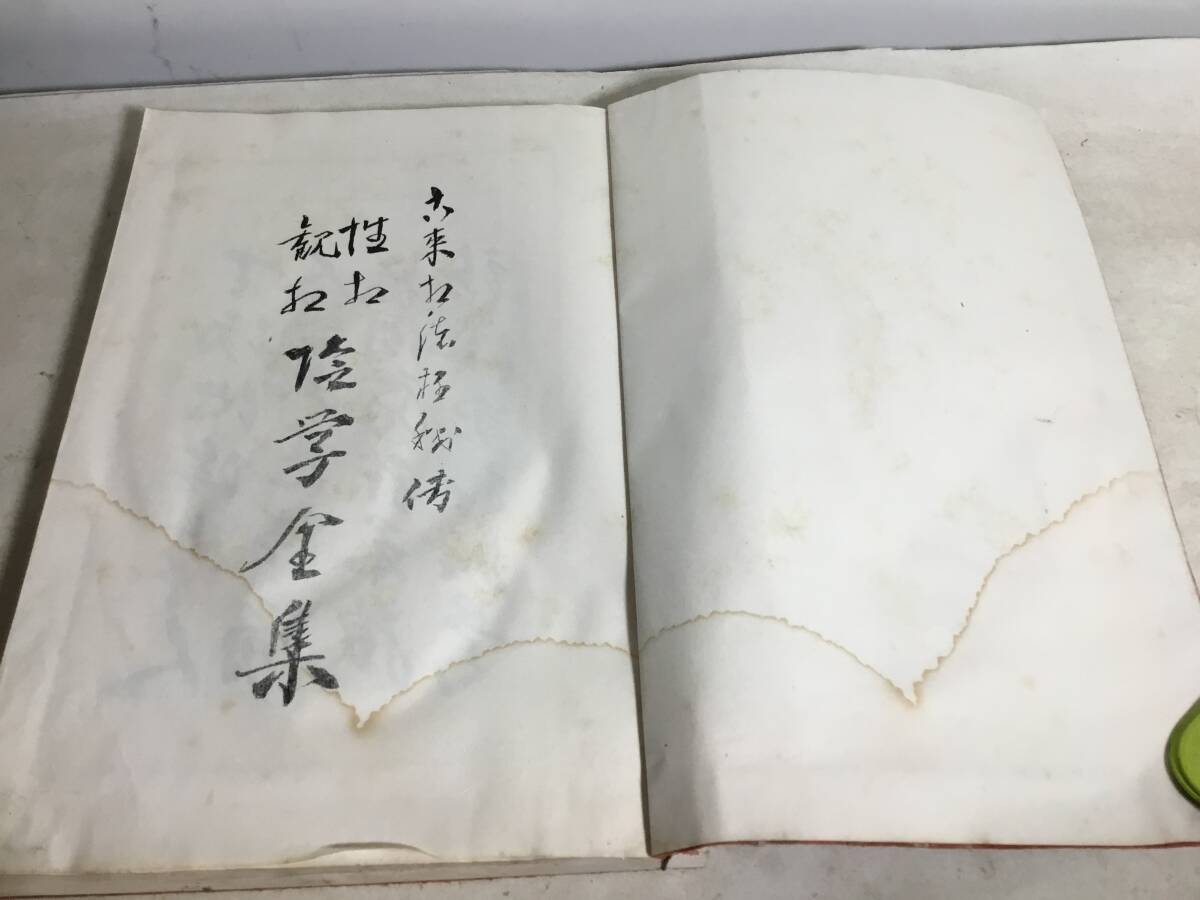 古来相法極秘傳
性相
観相
陰学全集